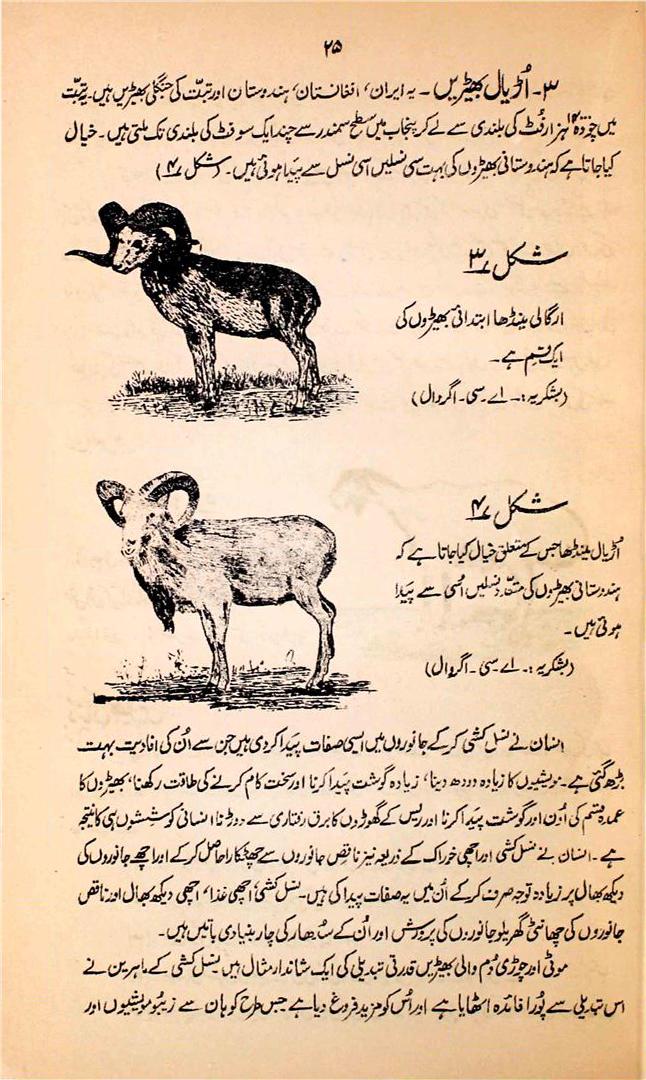 ۲۵
۳۔ اُڑیال بھیڑیں۔ یہ ایران، افغانستان، ہندوستان اور تبّت کی جنگلی بھیڑیں ہیں۔ یہ تبت
میں چودہ ہزار فٹ کی بلندی سے لے کر پنجاب میں سطح سمندر سے چند ایک سو فٹ کی بلندی تک ملتی ہیں۔ خیال
کیا جاتا ہے کہ ہندوستانی بھیڑوں کی بہت سی نسلیں اسی نسل سے پیدا ہوئی ہیں۔ (شکل ۴)
شکل ۳
ارگالی مینڈھا ابتدائی بھیڑوں کی
ایک قسم ہے۔
(بشکریہ:۔ اے۔سی۔ اگروال)
شکل ۴
اڑیال مینڈھا جس کے متعلق خیال کیا جاتا ہے کہ
ہندوستانی بھیڑوں کی متعدّد نسلیں اُسی سے پیدا
ہوئی ہیں۔
(بشکریہ:۔ اے سی۔ اگروال)
انسان نے نسل کشی کر کے جانوروں میں ایسی صفات پیدا کر دی ہیں جن سے اُن کی افادیت بہت
بڑھ گئی ہے۔ مویشیوں کا زیادہ دودھ دینا، زیادہ گوشت پیدا کرنا اور سخت کام کرنے کی طاقت رکھنا، بھیڑوں کا
عمدہ قسم کی اُون اور گوشت پیدا کرنا اور ریس کے گھوڑوں کا برق رفتاری سے دوڑنا انسانی کوششوں ہی کا نتیجہ
ہے۔ انسان نے نسل کشی اور اچھی خوراک کے ذریعہ نیز ناقص جانوروں سے چھٹکارا حاصل کر کے اور اچھے جانوروں کی
دیکھ بھال پر زیادہ توجہ صرف کر کے اُن میں یہ صفات پیدا کی ہیں۔ نسل کشی، اچھی غذا، اچھی دیکھ بھال اور ناقص
جانوروں کی چھانٹی گھریلو جانوروں کی پرورش اور اُن کے سُدھار کی چار بنیادی باتیں ہیں۔
موٹی اور چوڑی دُم والی بھیڑیں قدرتی تبدیلی کی ایک شاندار مثال ہیں۔ نسل کشی کے ماہرین نے
اس تبدیلی سے پُورا فائدہ اٹھایا ہے اور اُس کو مزید فروغ دیا ہے جس طرح کوہان سے زیبو مویشیوں اور